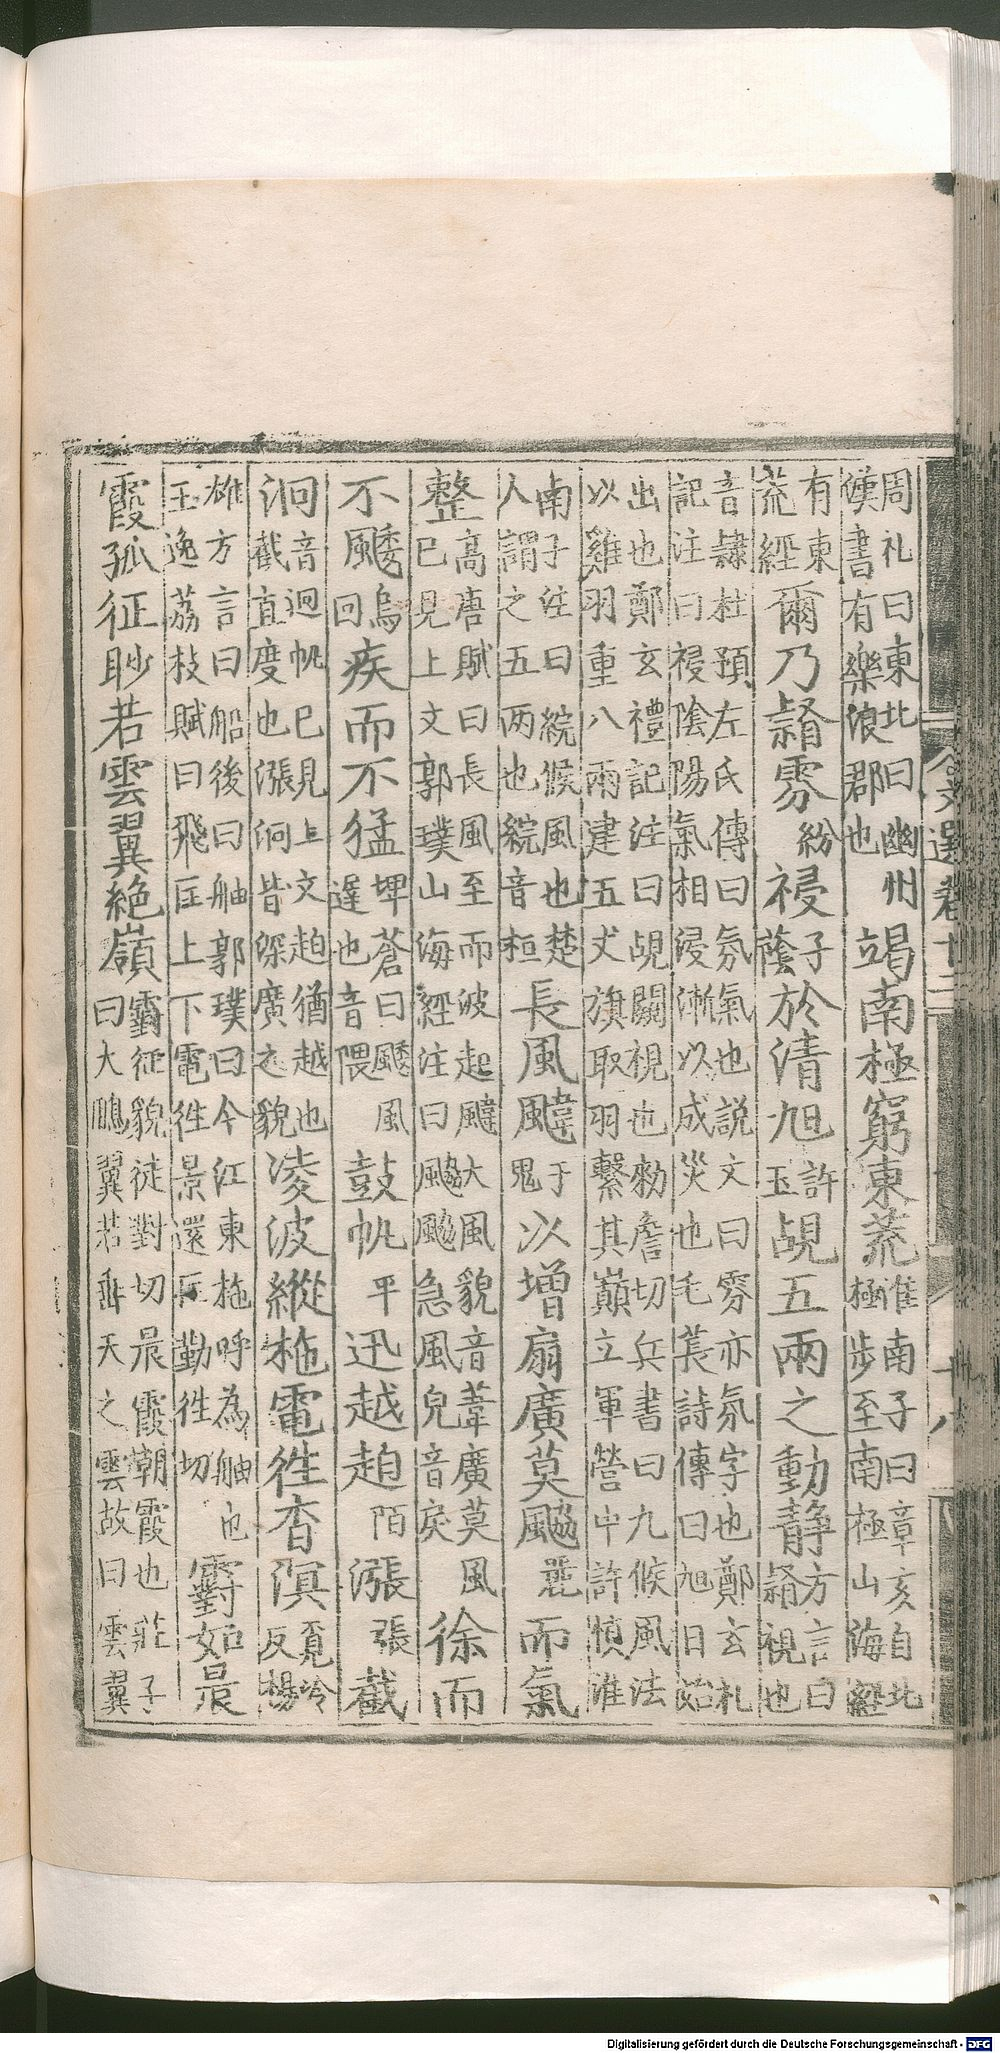 周礼曰東北曰幽州
漢書有樂浪郡也
竭南極窮東荒
淮南子曰章亥自北
極步至南極山海經
有東
荒經
爾乃雰紛祲子蔭於清旭許玉覘五兩之動静
方言曰
視也
音隷杜預左氏傳曰氛氣也説文曰雰亦氛字也鄭玄礼
記注曰祲陰陽氣相浸漸以成災也毛萇詩傳曰旭日始
出也鄭玄禮記注曰覘闚視也勑詹切兵書曰九候風法
以雞羽重八兩建五丈旗取羽繫其巔立軍營中許慎淮
南子注曰綄候風也楚
人謂之五两也綄音桓
長風䬙于鬼以增扇廣莫䬆麗而氣
整
高唐賦曰長風至而波起䬙大風貌音葦廣莫風
已見上文郭璞山海經注曰䬆䬆急風皃音戾
徐而
不䬐烏回疾而不猛
埤蒼曰䬐風
遲也音隈
鼓帆平迅越趙陌漲張截
泂
音迥帆已見上文趙猶越也
截直度也漲泂皆深廣之貌
淩波縱柂電徃杳溟
覔泠
反楊
雄方言曰船後曰舳郭璞曰今江東柂呼為舳也
王逸荔枝賦曰飛匡上下電徃景還匡勤徃切
䨴如晨
霞孤征眇若雲翼絶嶺
䨴征貌徒對切晨霞朝霞也莊子
曰大鵬翼若垂天之雲故曰雲翼
文選卷十二
十八
Digitalisierung gefördert durch die Deutsche Forschungsgemeinschaft - DFG